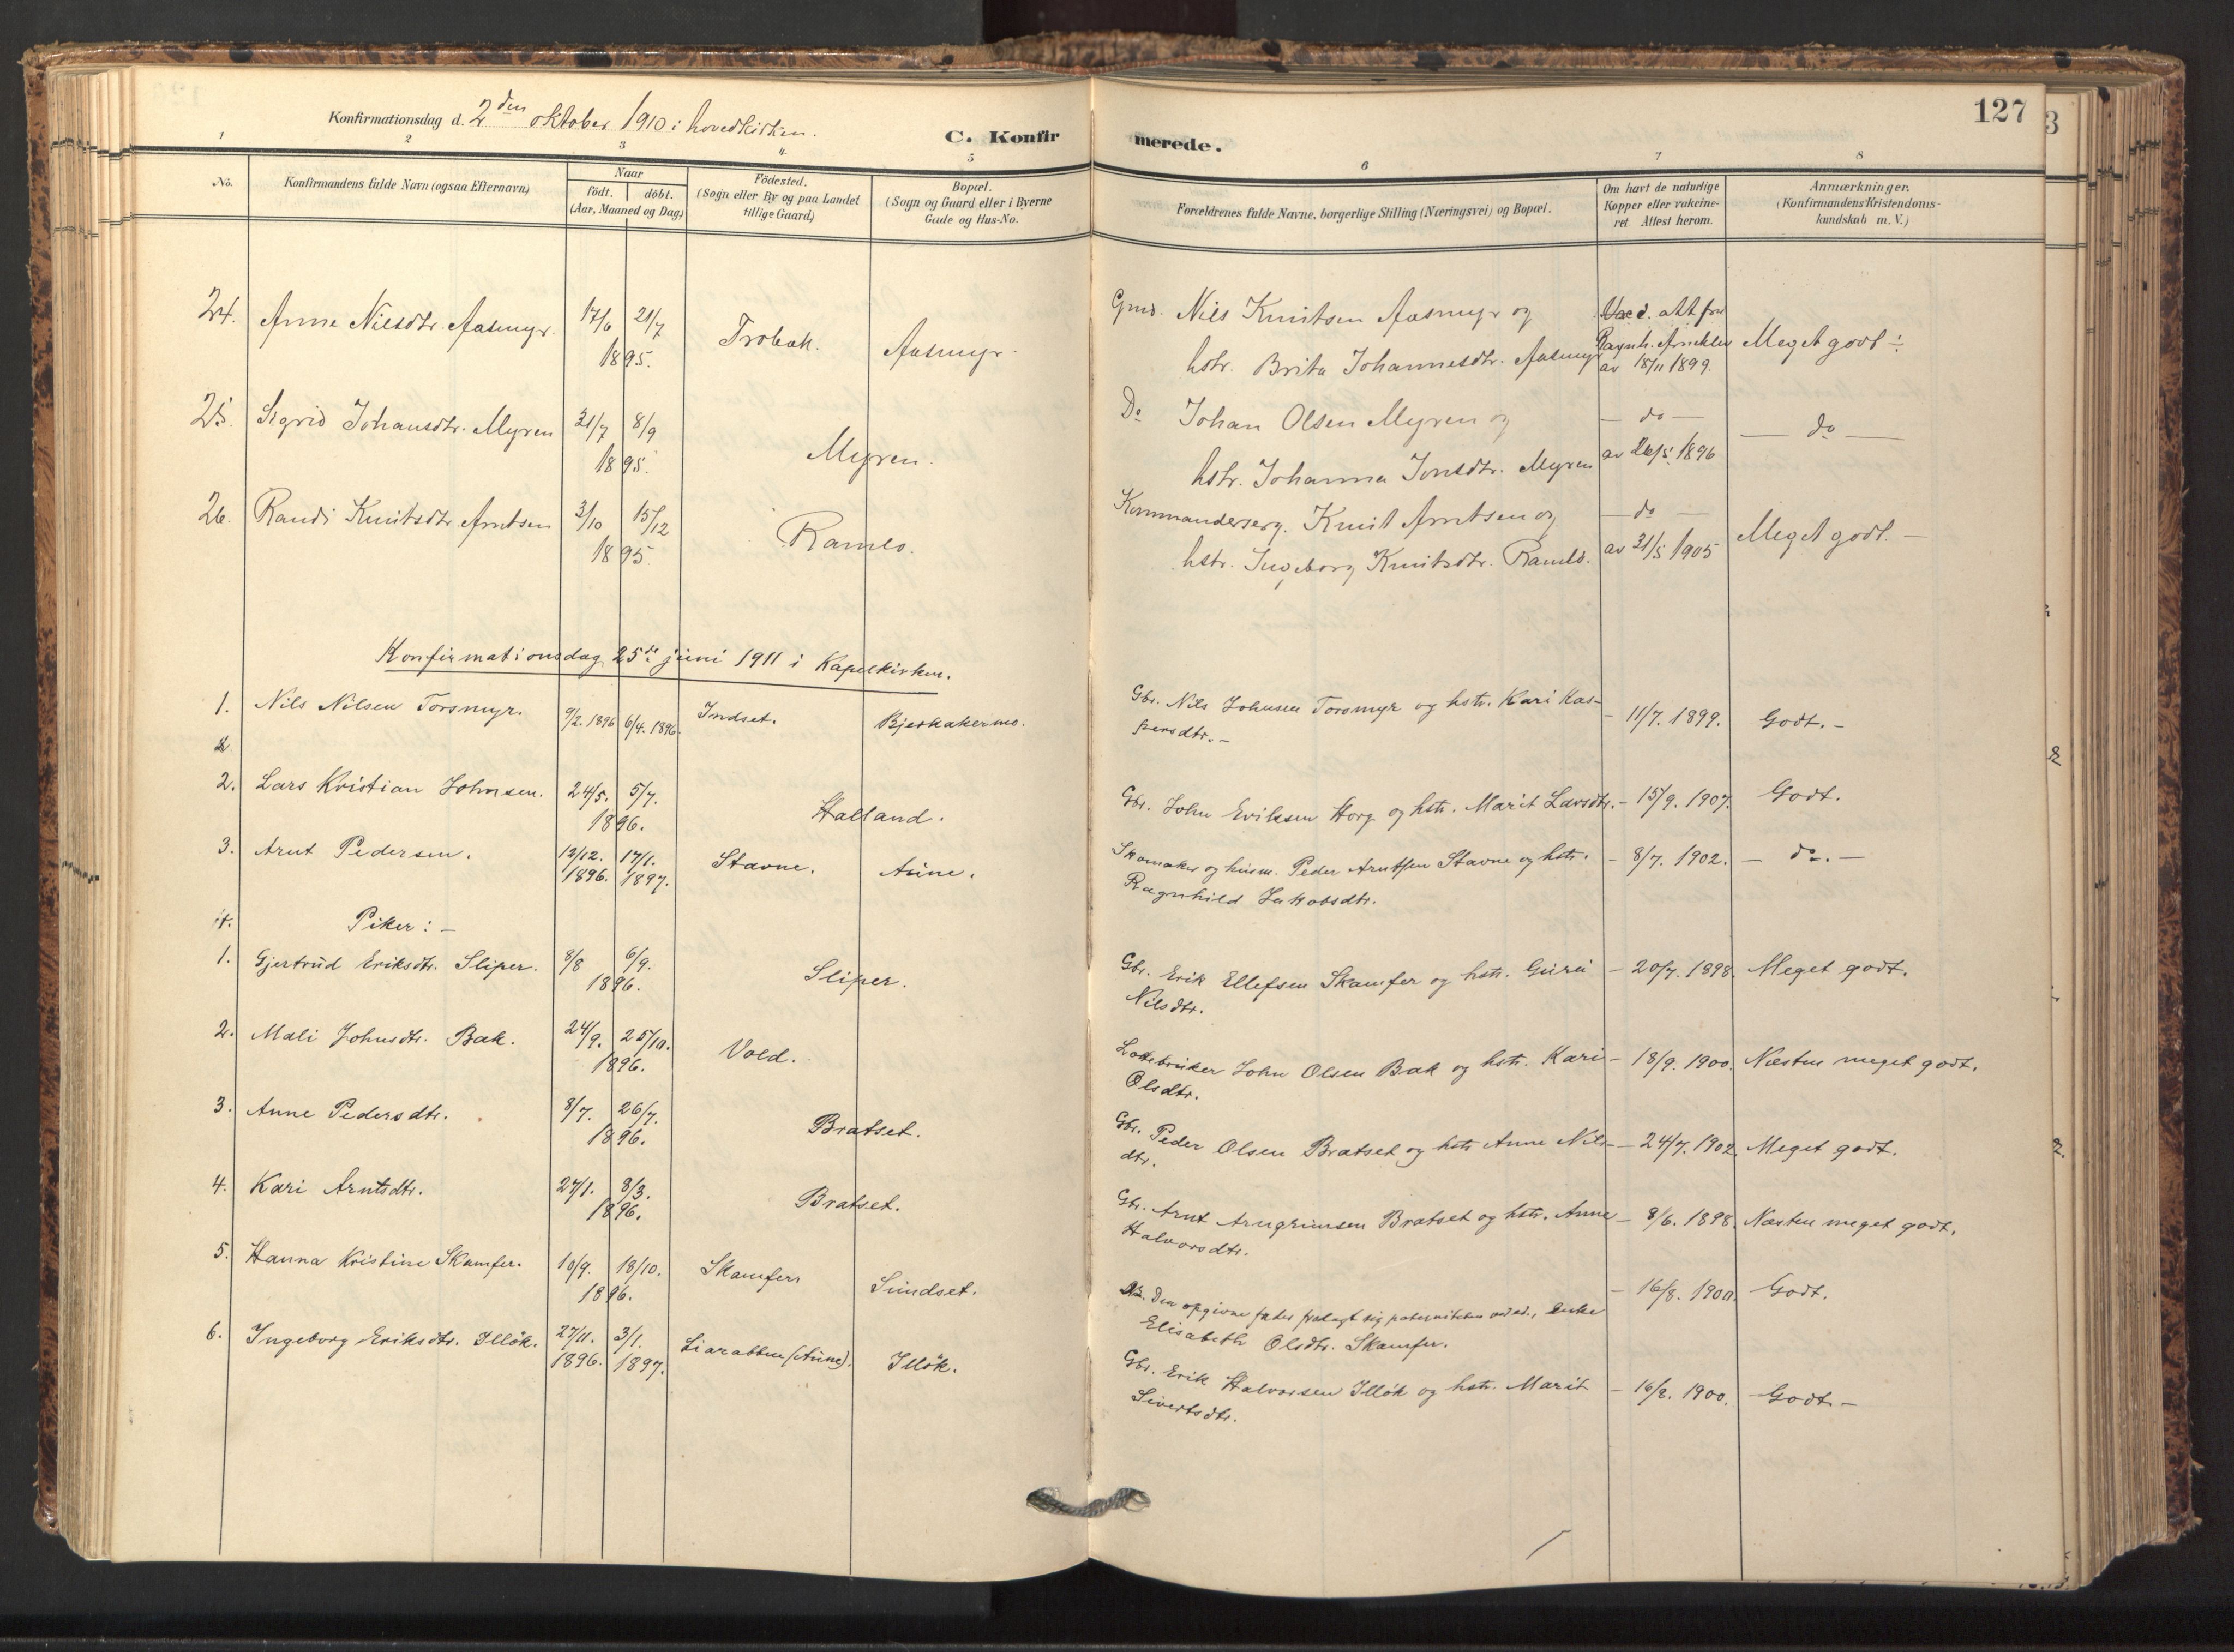 127
Konfirmationsdag d. 2den oktober 1910 i hovedkirken.
C. Konfirmerede.
1 2 3 4 5 6 7 8
No.
Konfirmandens fulde Navn (ogsaa Efternavn)
Naar
födt. döbt.
(Aar, Maaned og Dag)
Födested.
(Sogn eller By og paa Landet
tillige Gaard)
Bopæl.
(Sogn og Gaard eller i Byerne
Gade og Hus-No.
Forældrenes fulde Navne, borgerlige Stilling (Næringsvei) og Bopæl.
Om havt de naturlige
Kopper eller vakcine-
ret Attest herom.
Anmærkninger.
(Konfirmandens Kristendoms-
kundskab m. V.)
24. Anne Nilsdtr. Aasmyr. 17/6 21/7 Trobak. Aasmyr. Gmd. Nils Knutsen Aasmyr og Vac. att fra
1895. hstr. Brita Johannesdtr. Aasmyr Ragnh. av 18/11 1899. Meget godt ÷
25. Sigrid Johansdtr. Myren 31/7 8/9 Myren. Do Johan Olsen Myren og — do — — do —
1895. hstr. Johanna Jonsdtr. Myren av 26/5 1896
26. Randi Knutsdtr. Arntsen 3/10 15/12 Ramlo. Kommandersserg. Knut Arntsen og — do — Meget godt. —
1895. hstr. Ingeborg Knutsdtr. Ramlo. av 31/5 1905
Konfirmationsdag 25de juni 1911 i Kapelkirken.
1. Nils Nilsen Torsmyr. 9/2. 1896 6/4. 1896. Indset. Bjerkakermo. Gbr. Nils Johnsen Torsmyr og hstr. Kari Kas- – 11/7. 1899. Godt. –
persdtr. –
2.
2. Lars Kristian Johnsen. 24/5. 5/7. Halland. Gbr. John Eriksen Horg og hstr. Marit Larsdtr. – 15/9. 1907. Godt.
1896.
3. Arnt Pedersen. 12/12. 17/1. Stavne. Aune. Skomaker og husm. Peder Arntsen Stavne og hstr. – 8/7. 1902. – do. –
1896. 1897. Ragnhild Jakobsdtr.
4. Piker: –
1. Gjertrud Eriksdtr. Sliper. 8/8 6/9. Sliper. Gbr. Erik Ellefsen Skamfer og hstr. Guru – 20/7. 1898. Meget godt.
1896. Nilsdtr.
2. Mali Johnsdtr. Bak. 24/9. 25/10. Vold. Lottebruker John Olsen Bak og hstr. Kari – 18/9. 1900. Næsten meget godt.
1896. Olsdtr.
3. Anne Pedersdtr. 8/7. 26/7. Bratset. Gbr. Peder Olsen Bratset og hstr Anne Nils- – 24/7. 1902. Meget godt.
1896. dtr.
4. Kari Arntsdtr. 27/1. 8/3. Bratset. Gbr. Arnt Arngrimsen Bratset og hstr. Anne – 8/6. 1898. Næsten meget godt.
1896. Halvorsdtr.
5. Hanna Kristine Skamfer. 10/9. 18/10. Skamfer Sundset. – 16/8. 1900. Godt.
1896. Den opgivne fader fralagt sig paterniteten ved ed., enke
Elisabeth Olsdtr. Skamfer.
6. Ingeborg Eriksdtr. Illøk. 27/11. 3/1. Liarabben (Aune). Illøk. Gbr. Erik Halvorsen Illøk og hstr. Marit – 16/8. 1900. Godt. –
1896. 1897. Sivertsdtr.